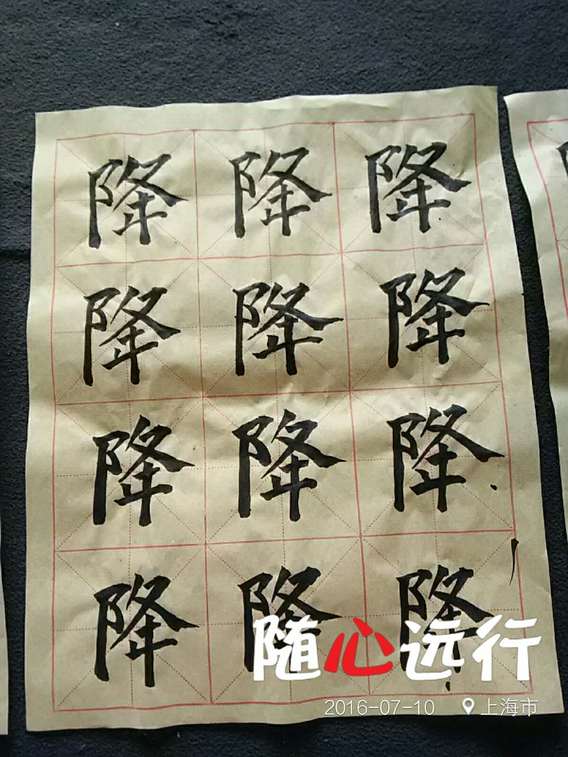 降降降
降降降
降降降
降降降
随心远行
2016-07-10 上海市